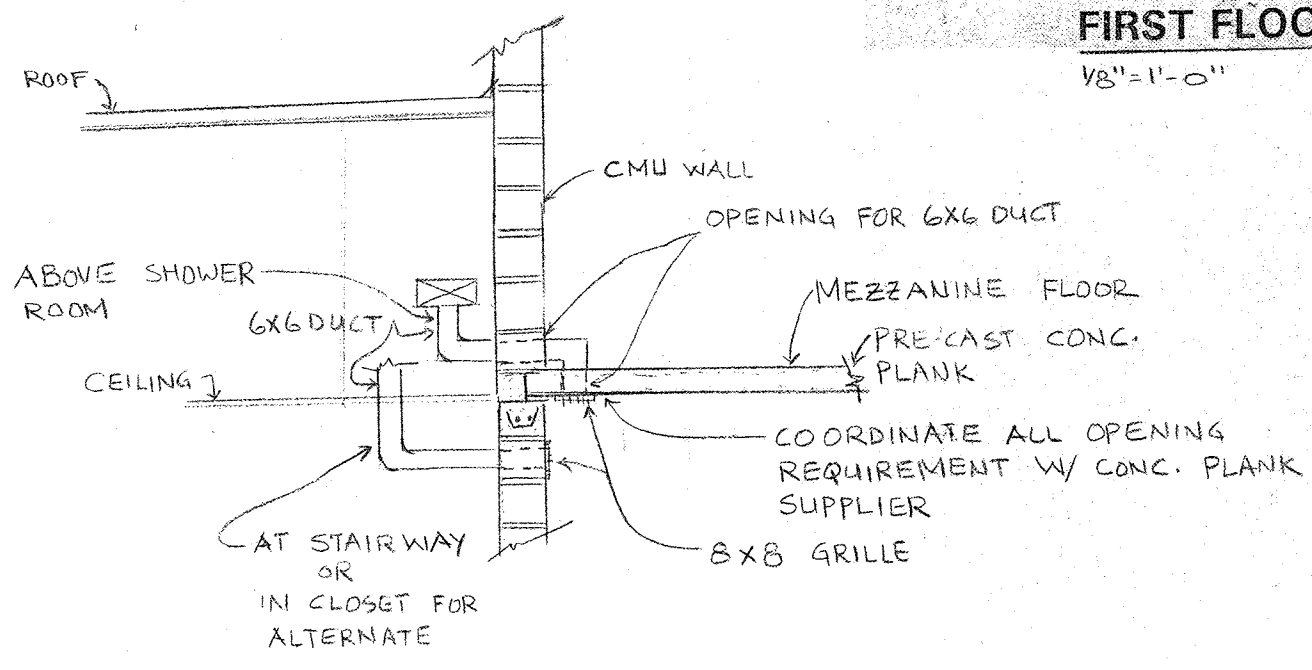 FIRST FLOO
1/8"=1'-0"
ROOF
CMU WALL
OPENING FOR 6X6 DUCT
ABOVE SHOWER
ROOM
6X6 DUCT
MEZZANINE FLOOR
PRE-CAST CONC.
PLANK
CEILING
COORDINATE ALL OPENING
REQUIREMENT W/ CONC. PLANK
SUPPLIER
8X8 GRILLE
AT STAIRWAY
OR
IN CLOSET FOR
ALTERNATE